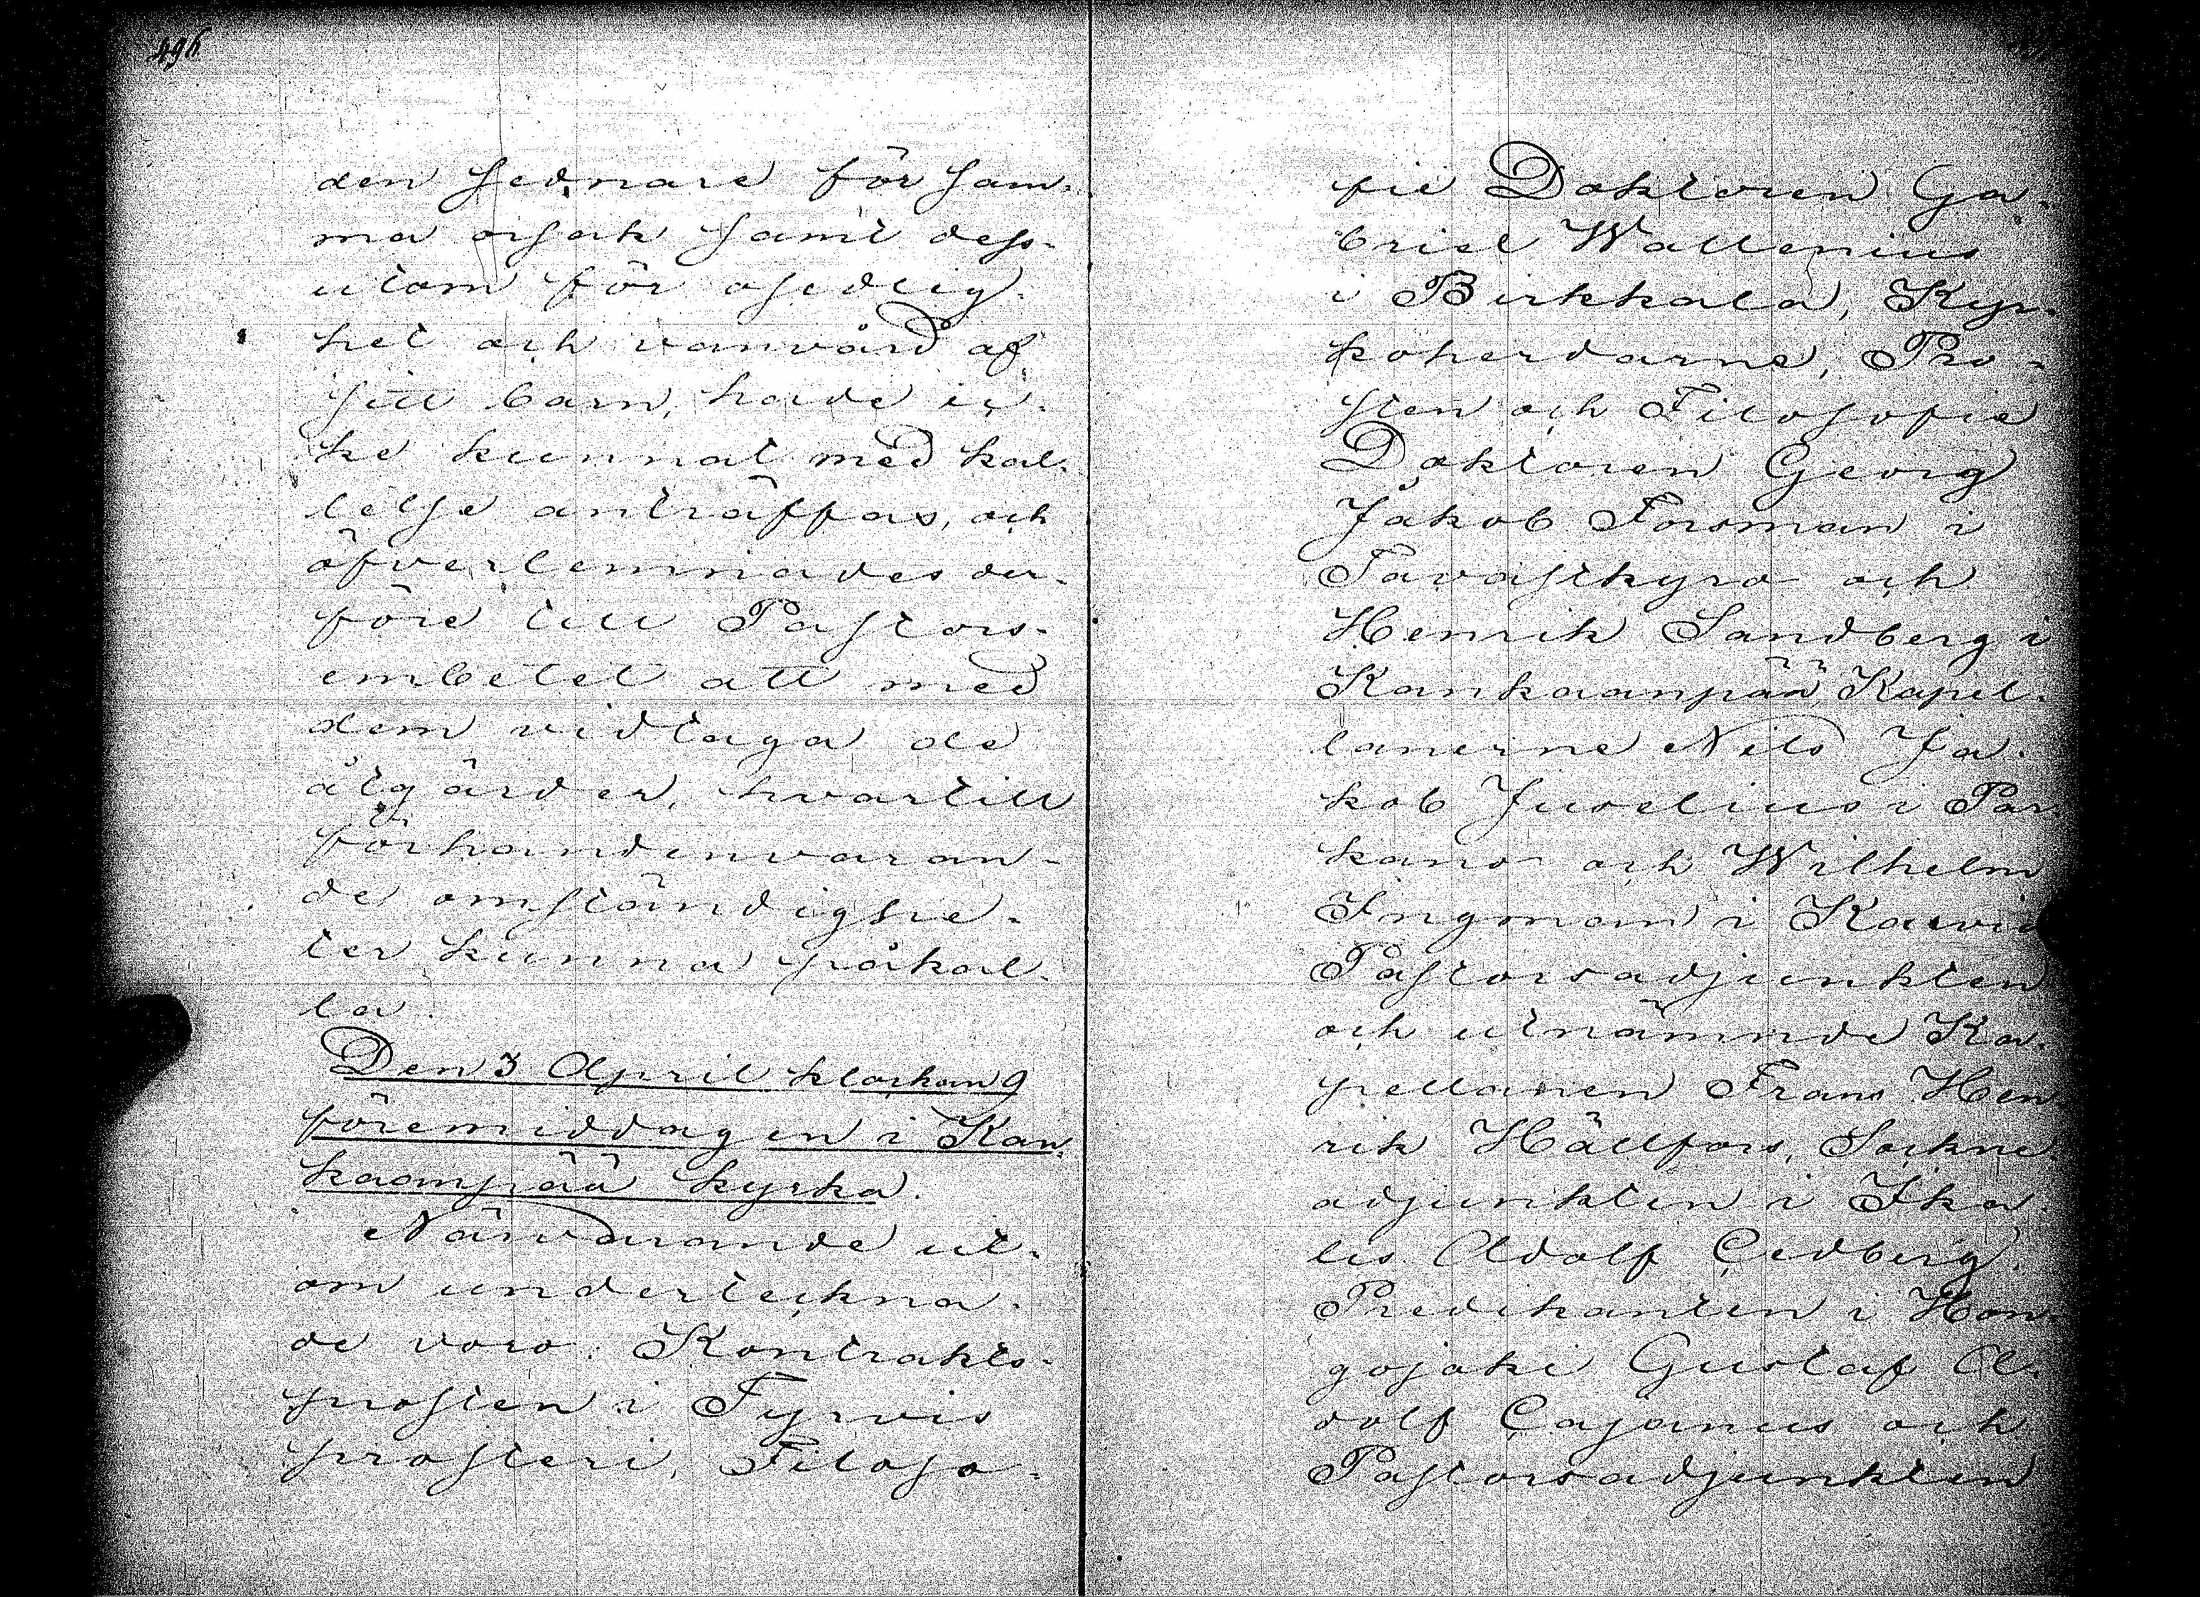 496
den sednare för sam-
ma orsak samt dess-
utom för osedlig-
het och vanvård af
sitt barn, hade ic-
ke kunnat med kal-
lelse anträffas, och
öfverlemnades der-
före till Pastors-
embetet att med
dem vidtaga de
åtgärder, hvartill
förhandenvaran-
de omständighe-
ter kunna påkal-
la.
Den 3 April klockan 9
föremiddagen i Kan-
kaanpää kyrka.
Närvarande ut-
om underteckna-
de voro: Kontrakts-
prosten i Tyrvis
prosteri, Filoso-
fie Doktoren Ga-
briel Wallenius
i Birkkala, Kyr-
koherdarne, Pro-
sten och Filosofie
Doktoren Georg
Jakob Forsman i
Tavastkyro och
Henrik Sandberg i
Kankaanpää, Kapel-
lanerne Nils Ja-
kob Juselius i Par-
kano och Wilhelm
Ingman i Karvia
Pastorsadjunkten
och utnämnde Ka-
pellanen Frans Hen-
rik Hällfors, Sockne-
adjunkten i Ika-
lis Adolf Cedberg,
Predikanten i Hon-
gojoki Gustaf A-
dolf Cajanus och
Pastorsadjunkten